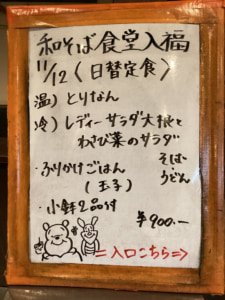 和そば食堂入福
11/12(日替定食)
温)とりなん
冷)レディーサラダ大根と
わさび菜のサラダ
そば・
うどん
・ふりかけごはん
(玉子)
・小鉢2品付
¥900.-
=入口こちら⇒